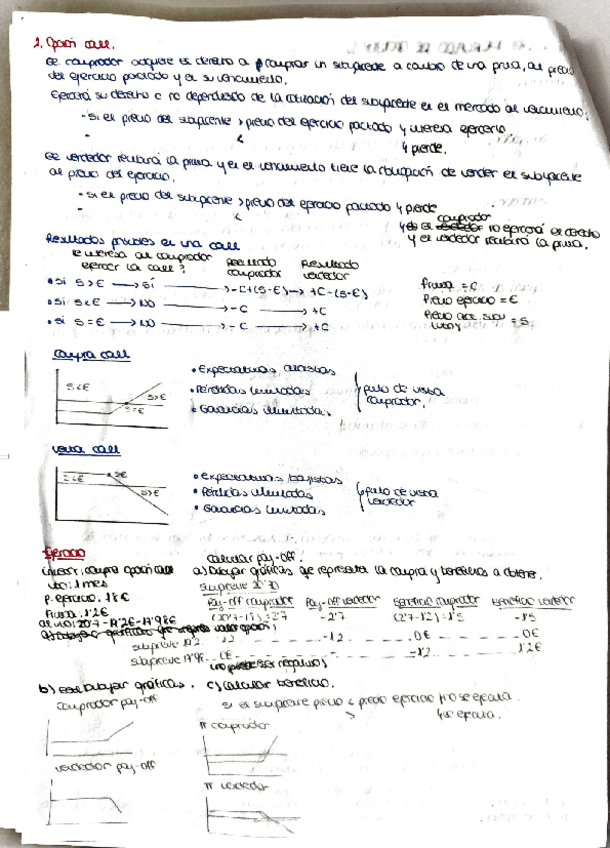 2. Opción call.
El comprador adquiere el derecho a comprar un subyacente a cambio de una prima, al precio
del ejercicio pactado y el su vencimiento.
Ejercerá su derecho o no dependiendo de la cotización del subyacente en el mercado al vencimiento:
- Si el precio del subyacente > precio del ejercicio pactado y interesa ejercerlo.
- < ↳ pierde.
El vendedor recibirá la prima y en el vencimiento tiene la obligación de vender el subyacente
al precio del ejercicio.
- Si el precio del subyacente > precio del ejercicio pactado ↳ pierde
- < comprador
no ejercerá el derecho
y el vendedor recibirá la prima.
Resultados posibles en una call
le interesa al comprador ejercer la call? Resultado comprador Resultado vendedor
• Si S>E → SÍ → -C+(S-E) → +C-(S-E)
• Si S<E → NO → -C → +C
• Si S=E → NO → -C → +C
Prima = C
Precio ejercicio = E
= S
Compra call
S<E S>E S=E
• Expectativas alcistas
• Pérdidas limitadas
• Ganancias ilimitadas.
punto de vista comprador.
Venta call
S>E
• Expectativas bajistas
• Pérdidas ilimitadas
• Ganancias limitadas
punto de vista vendedor
Ejercicio
Calcular pay-off
compra opción call
a) Dibujar gráficas que representa la compra y beneficios a obtener.
1 mes
p. ejercicio: 18€
Prima: 1'2€
subyacente 20'70
Pay-off comprador Pay-off vendedor Beneficio comprador Beneficio vendedor
(20'7-18)=2'7 -2'7 (2'7-1'2)=1'5 -1'5
20'7 - 19'2€ - 17'98€
subyacente 19'2 1'2 -1'2 0€ 0€
subyacente 17'98 0€ - -1'2 1'2€
(no puede ser negativo)
b) Dibujar gráficas. c) Calcular beneficio.
comprador pay-off
si el subyacente precio < precio ejercicio no se ejecuta
> ↳ se ejecuta.
π comprador
vendedor pay-off
π vendedor